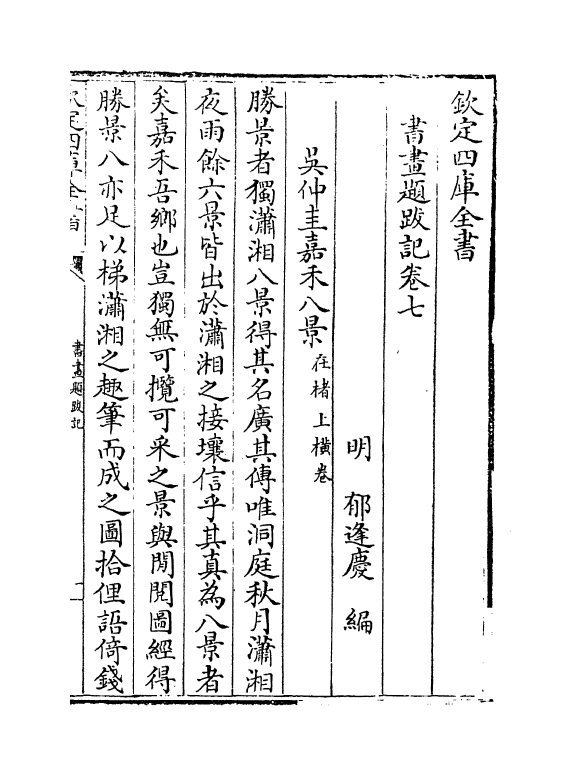 欽定四庫全書
書畫題跋記卷七
明 郁逢慶 編
吳仲圭嘉禾八景 在楮上橫卷
勝景者獨瀟湘八景得其名廣其傳唯洞庭秋月瀟湘
夜雨餘六景皆出於瀟湘之接壤信乎其真為八景者
矣嘉禾吾鄉也豈獨無可攬可采之景與閒閱圖經得
勝景八亦足以梯瀟湘之趣筆而成之圖拾俚語倚錢
欽定四庫全書
書畫題跋記
一